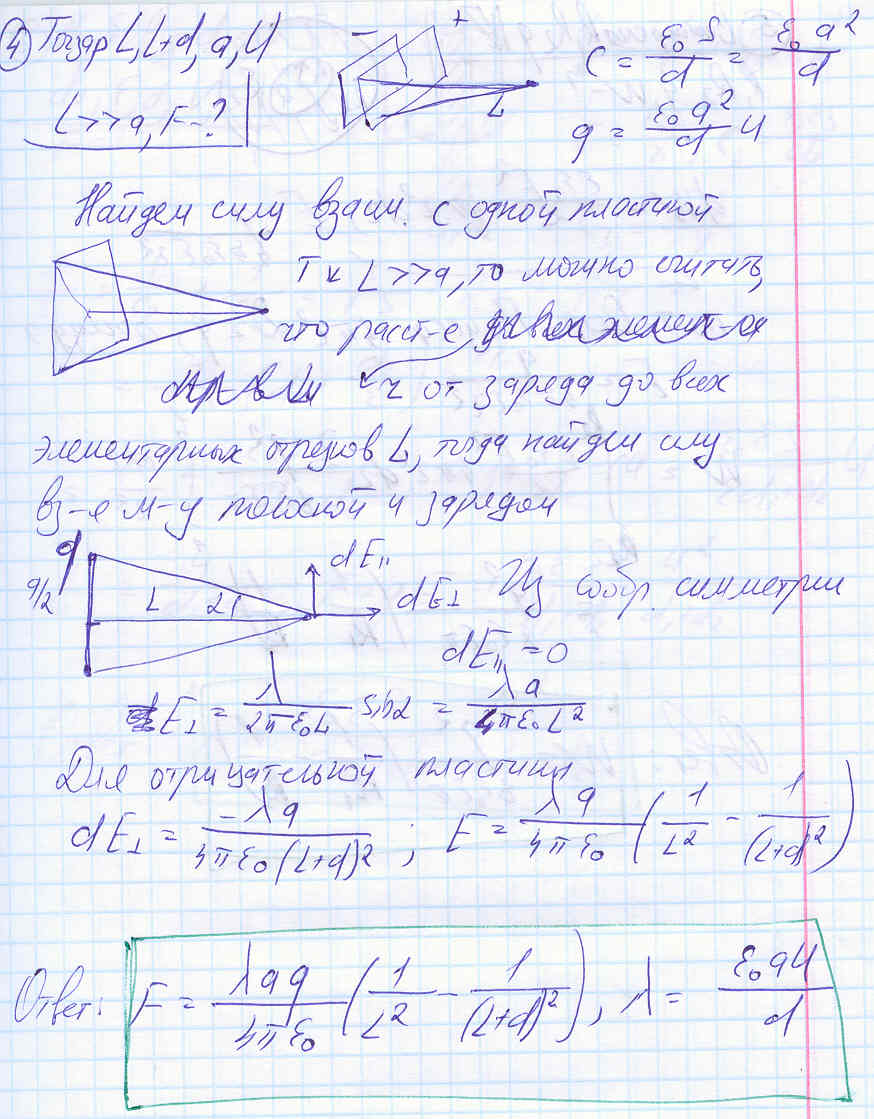 ④ Точ зар L, L+d, a, U
L>>a, F-?
- +
L
C = ε₀S/d = ε₀a²/d
q = ε₀a²/d U
Найдем силу взаим. с одной пластиной
Т к L>>a, то можно считать,
что расст-е
r от заряда до всех
элементарных отрезков L, тогда найдем силу
вз-я м-у полоской и зарядом
a/2 L α dE∥ dE⊥ Из сообр. симметрии
dE∥ = 0
E⊥ = λ/2πε₀L sin α = λa/4πε₀L²
Для отрицательной пластины
dE⊥ = -λa/4πε₀(L+d)² ; E = λa/4πε₀ (1/L² - 1/(L+d)²)
Ответ: F = λaq/4πε₀ (1/L² - 1/(L+d)²), λ = ε₀aU/d